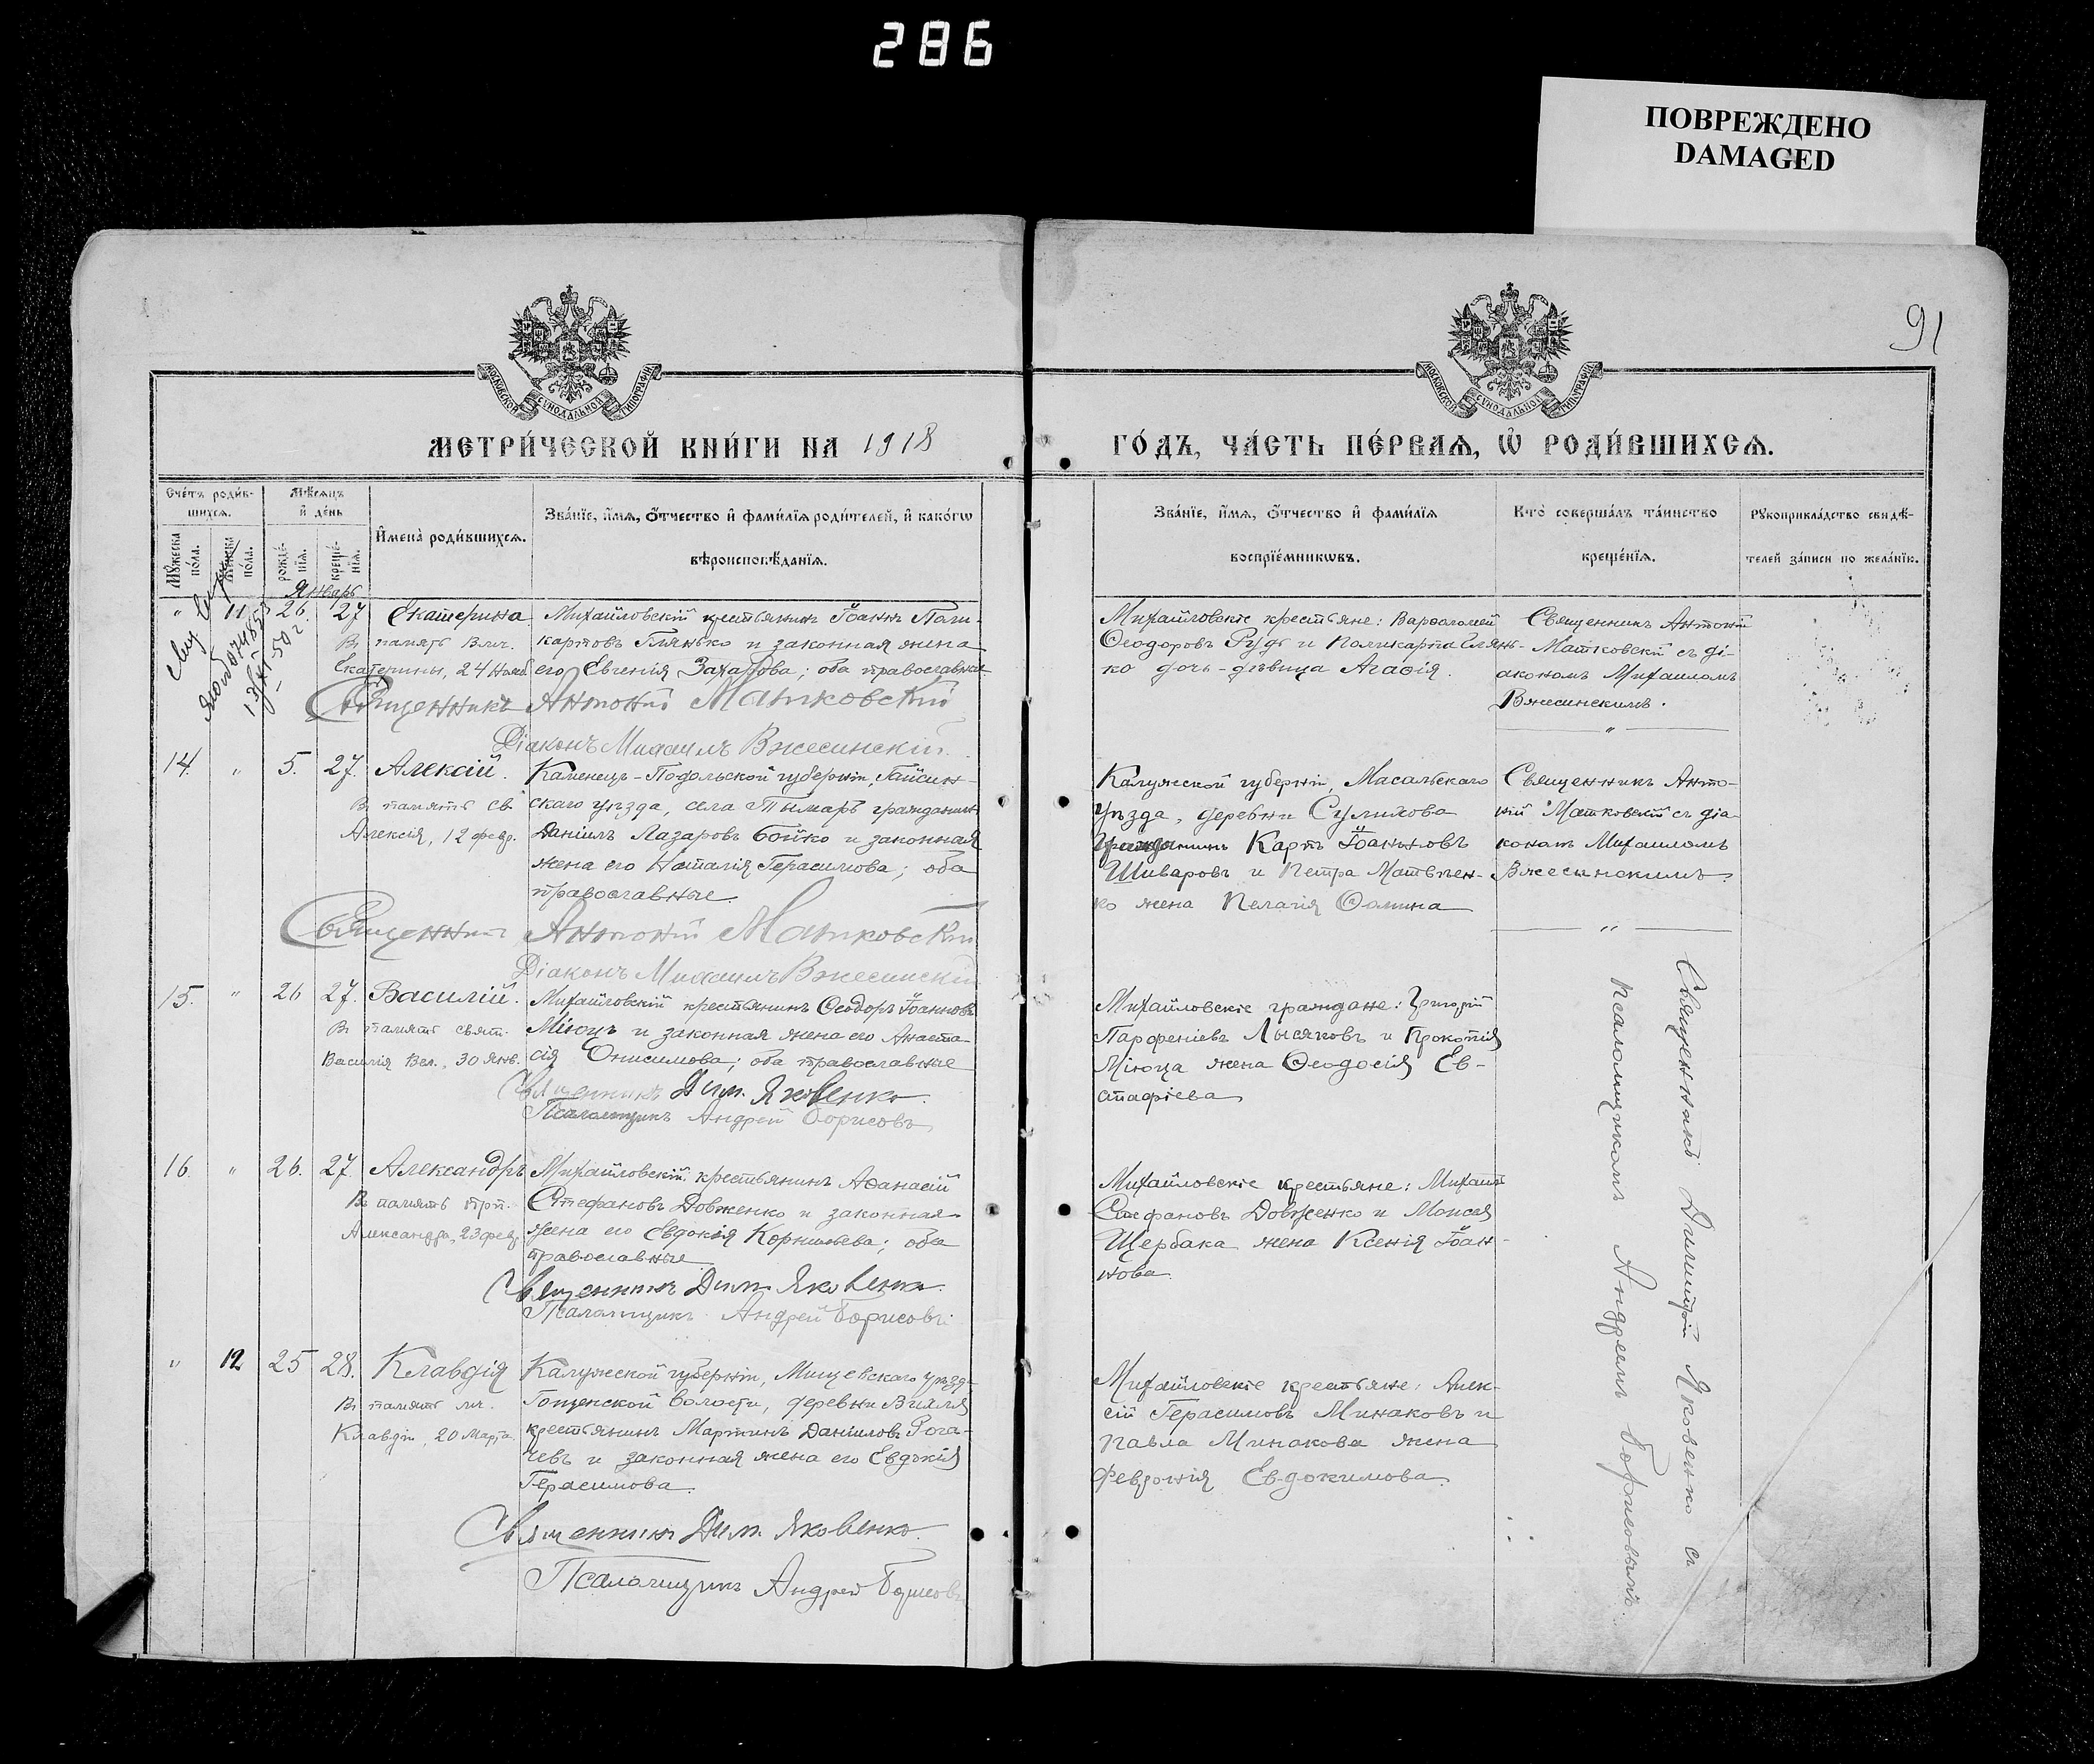 286
ПОВРЕЖДЕНО
DAMAGED
91
МОСКОВСКОЙ СѴНОДАЛЬНОЙ ТИПОГРАФІИ
МОСКОВСКОЙ СѴНОДАЛЬНОЙ ТИПОГРАФІИ
МЕТРИ́ЧЕСКОЙ КНИ́ГИ НА 1918
ГО́ДЪ, ЧА́СТЬ ПЕ́РВАѦ, Ѡ РОДИ́ВШИХСѦ.
Сче́тъ роди́в-
шихсѧ.
Мѣ́сѧцъ
и҆ де́нь
И҆мена̀ роди́вшихсѧ.
Зва́нїе, и҆́мѧ, ѻ҆́тчество и҆ фами́лїѧ роди́телей, и҆ како́гѡ
вѣроисповѣ́данїѧ.
Мꙋ́жеска по́ла.
Же́нска по́ла.
рожде́-нїѧ.
креще́-нїѧ.
Зва́нїе, и҆́мѧ, ѻ҆́тчество и҆ фами́лїѧ
воспрїе́мникѡвъ.
Кто̀ соверша́лъ та́инство
креще́нїѧ.
Рꙋкоприкла́дство свидѣ́-
телей за́писи по жела́нїю.
Январь
" 11. 26. 27 Екатерина
Въ память Влмч.
Екатерины, 24 Нояб.
Михайловскій крестьянинъ Іоаннъ Поли-
карповъ Глянько и законная жена
его Евгенія Захарова; оба православные
Священникъ Антоній Матковскій
Діаконъ Михаилъ Вжесинскій.
Михайловскіе крестьяне: Варѳоломей
Ѳеодоровъ Рудь и Поликарпа Глянь-
ко дочь-дѣвица Агаѳія.
Священникъ Антоній
Матковскій съ ді-
акономъ Михаиломъ
Вжесинскимъ.
14. " 5. 27. Алексій.
Въ память св.
Алексія, 12 февр.
Каменецъ-Подольской губерніи, Гайсин-
скаго уѣзда, села Тымаръ гражданинъ
Даніилъ Лазаровъ Бойко и законная
жена его Наталія Герасимова; оба
православные.
Священникъ Антоній Матковскій
Діаконъ Михаилъ Вжесинскій
Калужской губерніи, Масальскаго
уѣзда, деревни Сулихова
гражданинъ Карпъ Іоанновъ
Шиваровъ и Петра Матвѣен-
ко жена Пелагія Ѳомина
Священникъ Анто-
ній Матковскій съ діа-
кономъ Михаиломъ
Вжесинскимъ.
15. " 26 27. Василій.
Въ память свят.
Василія Вел., 30 Янв.
Михайловскій крестьянинъ Ѳеодоръ Іоанновъ
Міюцъ и законная жена его Анаста-
сія Онисимова; оба православные
Священникъ Дим. Яковенко.
Псаломщикъ Андрей Борисовъ
Михайловскіе граждане: Григорій
Парѳеніевъ Лысяковъ и Прокопія
Міюца жена Ѳеодосія Ев-
стафіева
16. " 26. 27. Александръ
Въ память прп.
Александра, 23 февр.
Михайловскій крестьянинъ Аѳанасій
Стефановъ Довженко и законная
жена его Евдокія Корнильева; оба
православные
Священникъ Дим. Яковенко.
Псаломщикъ Андрей Борисовъ.
Михайловскіе крестьяне: Михаилъ
Стефановъ Довженко и Моисея
Щербака жена Ксенія Іоан-
нова.
" 12 25 28. Клавдія
Въ память мч.
Клавдіи, 20 Марта.
Калужской губерніи, Мищевскаго уѣзда
крестьянинъ Мартинъ Даніиловъ Рога-
чевъ и законная жена его Евдокія
Герасимова.
Священникъ Дим. Яковенко.
Псаломщикъ Андрей Борисовъ
Михайловскіе крестьяне: Алек-
сій Герасимовъ Минаковъ и
Павла Минакова жена
Феврожія Евдокимова.
Священникъ Димитрій Яковенко съ
псаломщикомъ Андреемъ Борисовымъ.